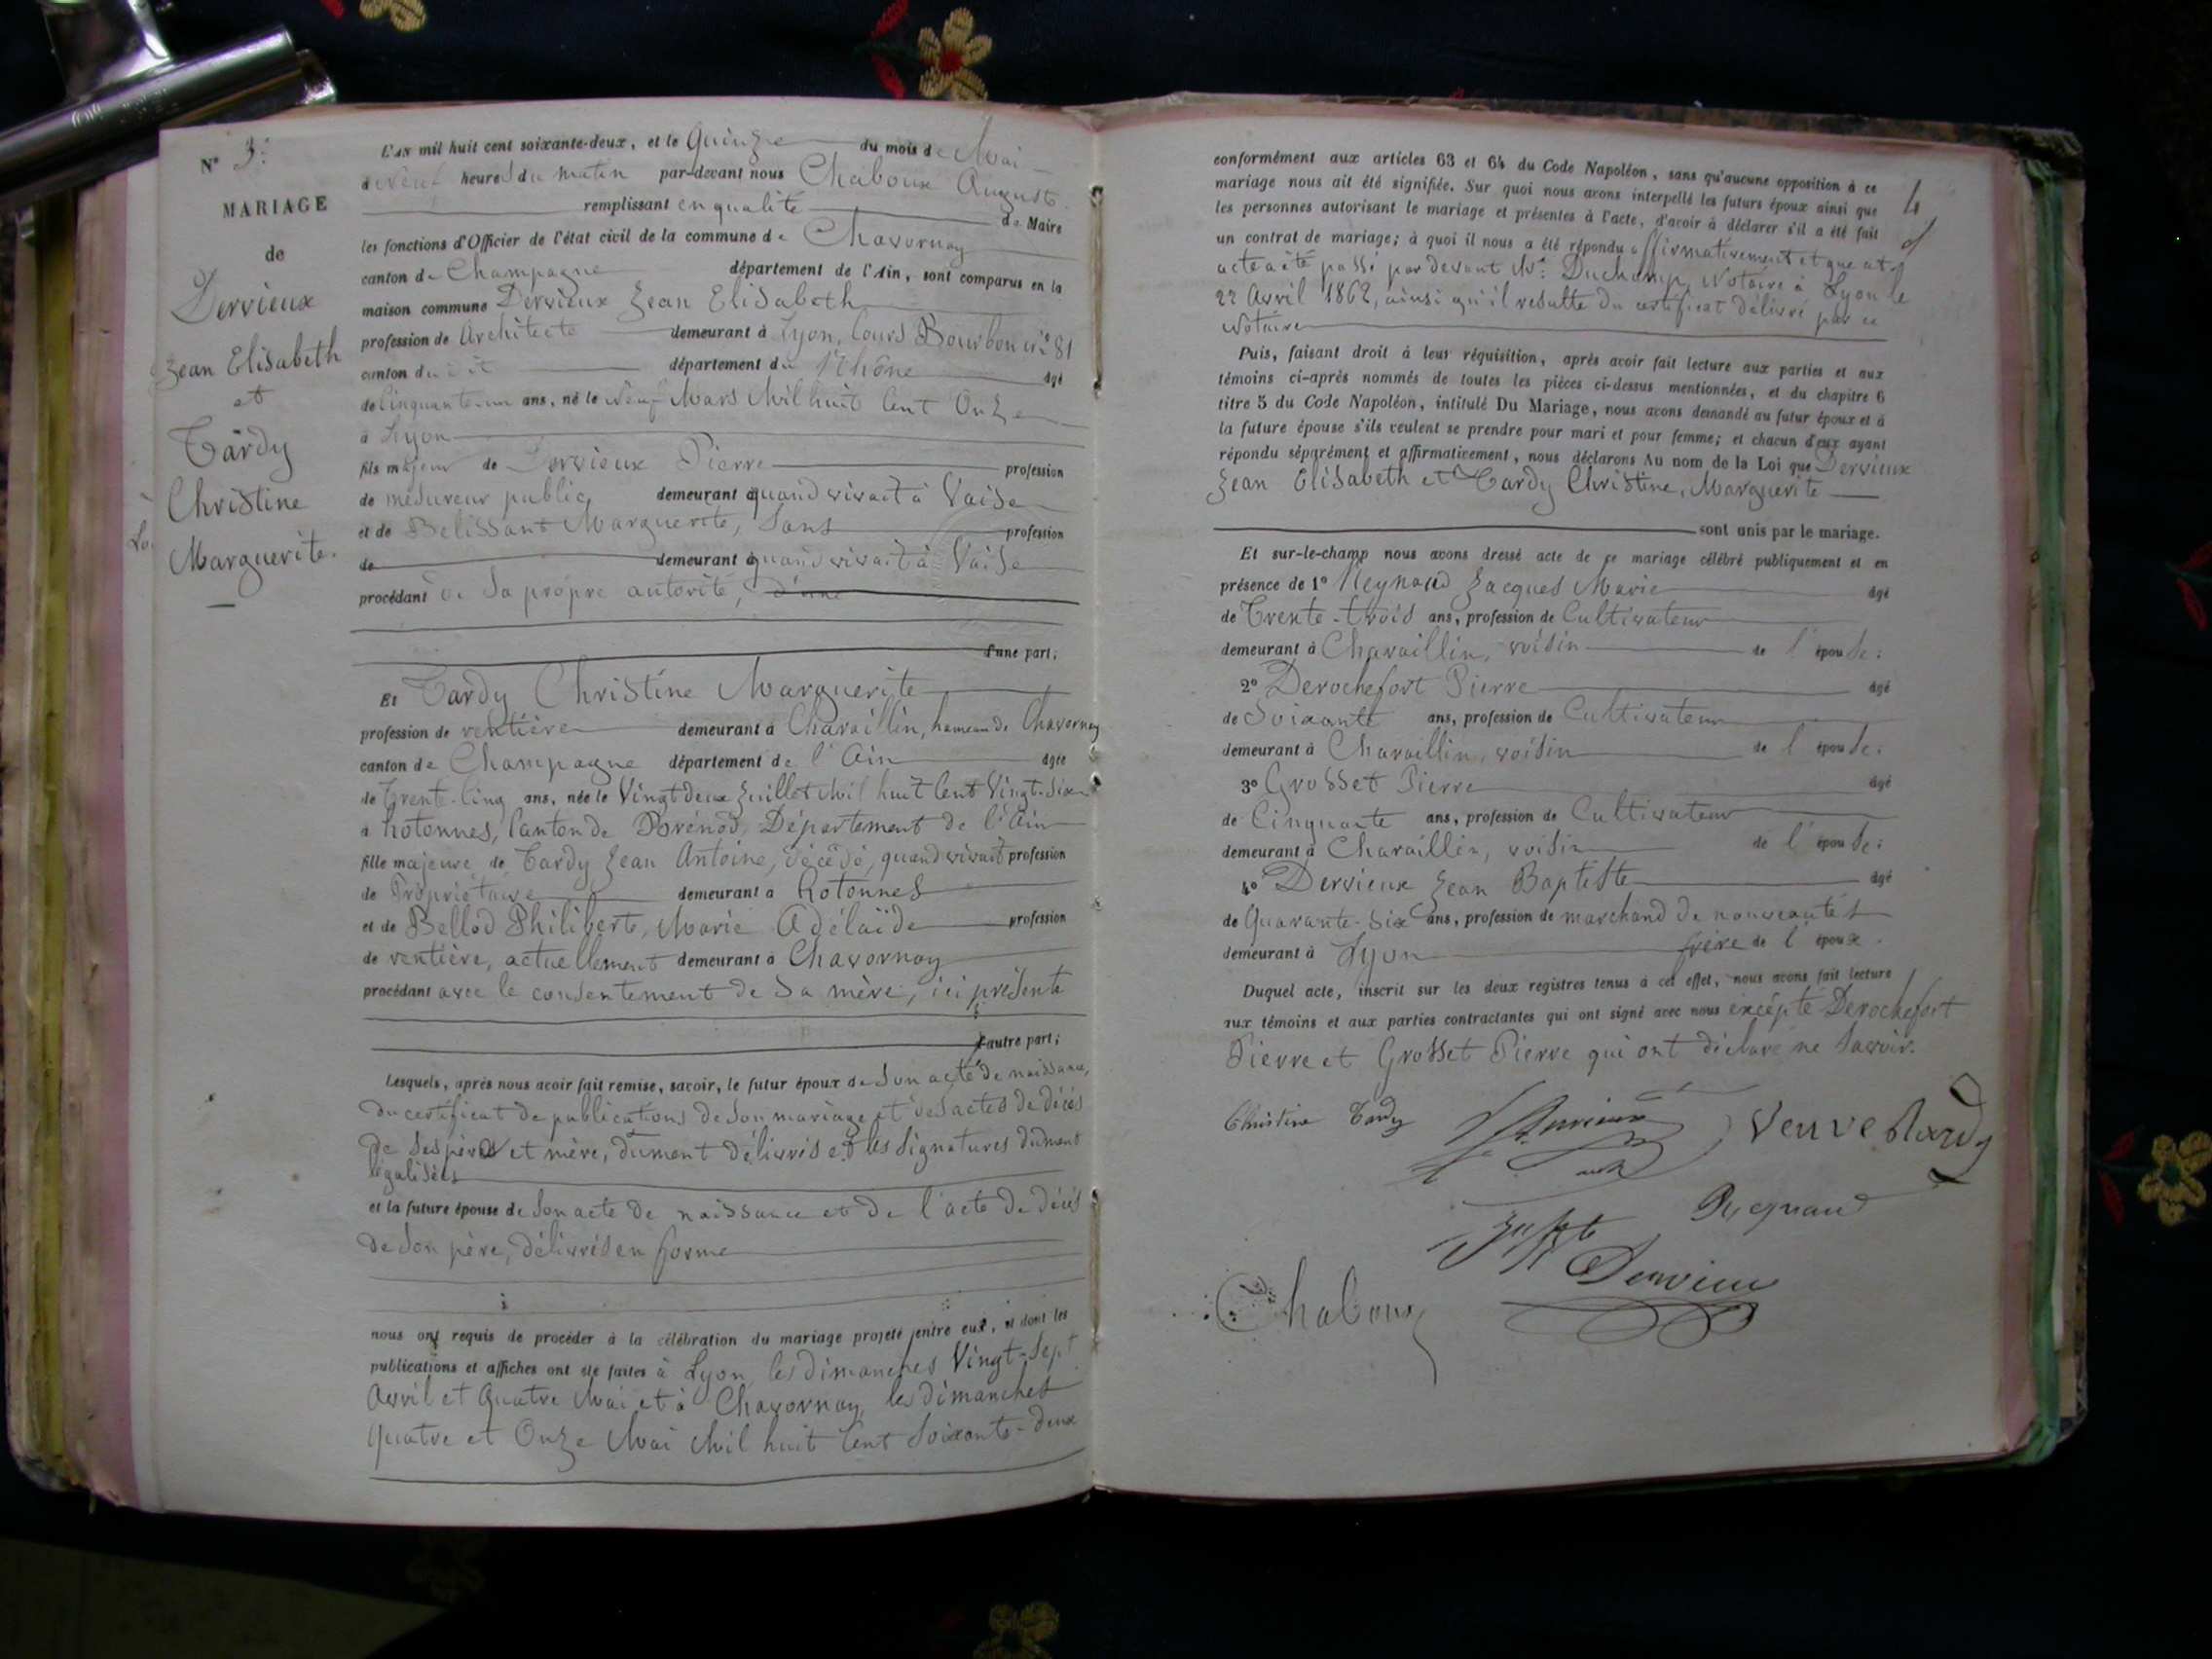 N° 3.
MARIAGE
de
Dervieux
Jean Elisabeth
et
Tardy
Christine
Marguerite.
L'AN mil huit cent soixante-deux, et le Quinze du mois de Mai
à Neuf heures du matin par-devant nous Chaboux Auguste
remplissant en qualité de Maire
les fonctions d'Officier de l'état civil de la commune de Chavornay
canton de Champagne département de l'Ain, sont comparus en la
maison commune Dervieux Jean Elisabeth
profession de Architecte demeurant à Lyon, Cours Bourbon n° 81
canton du département du Rhône âgé
de Cinquante-un ans, né le Neuf Mars Mil huit Cent Onze
à Lyon
fils majeur de Dervieux Pierre profession
de mesureur public, demeurant quand vivait à Vaise
et de Belissant Marguerite, Sans profession
de demeurant quand vivait à Vaise
procédant de sa propre autorité, d'une
d'une part;
Et Tardy Christine Marguerite
profession de rentière demeurant à Charaillin, hameau de Chavornay
canton de Champagne département de l'Ain âgée
de Trente-Cinq ans, née le Vingt deux Juillet Mil huit Cent Vingt-Six
à hotonnes, Canton de Brénod, Département de l'Ain
fille majeure de Tardy Jean Antoine, décédé, quand vivait profession
de Propriétaire demeurant à hotonnes
et de Bellod Philiberte, Marie Adélaïde profession
de rentière, actuellement demeurant à Chavornay
procédant avec le consentement de sa mère, ici présente
d'autre part;
Lesquels, après nous avoir fait remise, savoir, le futur époux de son acte de naissance,
du certificat de publications de son mariage et des actes de décès
de ses père et mère, dument délivrés et les signatures dument
légalisées
et la future épouse de son acte de naissance et de l'acte de décès
de son père, délivrés en forme
nous ont requis de procéder à la célébration du mariage projeté entre eux, et dont les
publications et affiches ont été faites à Lyon, les dimanches Vingt-Sept
Avril et Quatre Mai et à Chavornay, les dimanches
Quatre et Onze Mai Mil huit Cent Soixante-deux
conformément aux articles 63 et 64 du Code Napoléon, sans qu'aucune opposition à ce
mariage nous ait été signifiée. Sur quoi nous avons interpellé les futurs époux ainsi que
les personnes autorisant le mariage et présentes à l'acte, d'avoir à déclarer s'il a été fait
un contrat de mariage; à quoi il nous a été répondu affirmativement et que cet
acte a été passé par devant Me. Duchamp, Notaire à Lyon le
22 Avril 1862, ainsi qu'il resulte du certificat délivré par ce
Notaire
Puis, faisant droit à leur réquisition, après avoir fait lecture aux parties et aux
témoins ci-après nommés de toutes les pièces ci-dessus mentionnées, et du chapitre 6
titre 5 du Code Napoléon, intitulé Du Mariage, nous avons demandé au futur époux et à
la future épouse s'ils veulent se prendre pour mari et pour femme; et chacun d'eux ayant
répondu séparément et affirmativement, nous déclarons Au nom de la Loi que Dervieux
Jean Elisabeth et Tardy Christine, Marguerite
sont unis par le mariage.
Et sur-le-champ nous avons dressé acte de ce mariage célébré publiquement et en
présence de 1° Reynaud Jacques Marie âgé
de Trente-trois ans, profession de Cultivateur
demeurant à Charaillin, voisin de l'épouse;
2° Derochefort Pierre âgé
de Soixante ans, profession de Cultivateur
demeurant à Charaillin, voisin de l'épouse;
3° Grosset Pierre âgé
de Cinquante ans, profession de Cultivateur
demeurant à Charaillin, voisin de l'épouse;
4° Dervieux Jean Baptiste âgé
de Quarante-Six ans, profession de marchand de nouveautés
demeurant à Lyon frère de l'époux.
Duquel acte, inscrit sur les deux registres tenus à cet effet, nous avons fait lecture
aux témoins et aux parties contractantes qui ont signé avec nous excépté Derochefort
Pierre et Grosset Pierre qui ont déclaré ne savoir.
Christine Tardy Dervieux Veuve Tardy
Reynaud
Dervieux
Chaboux